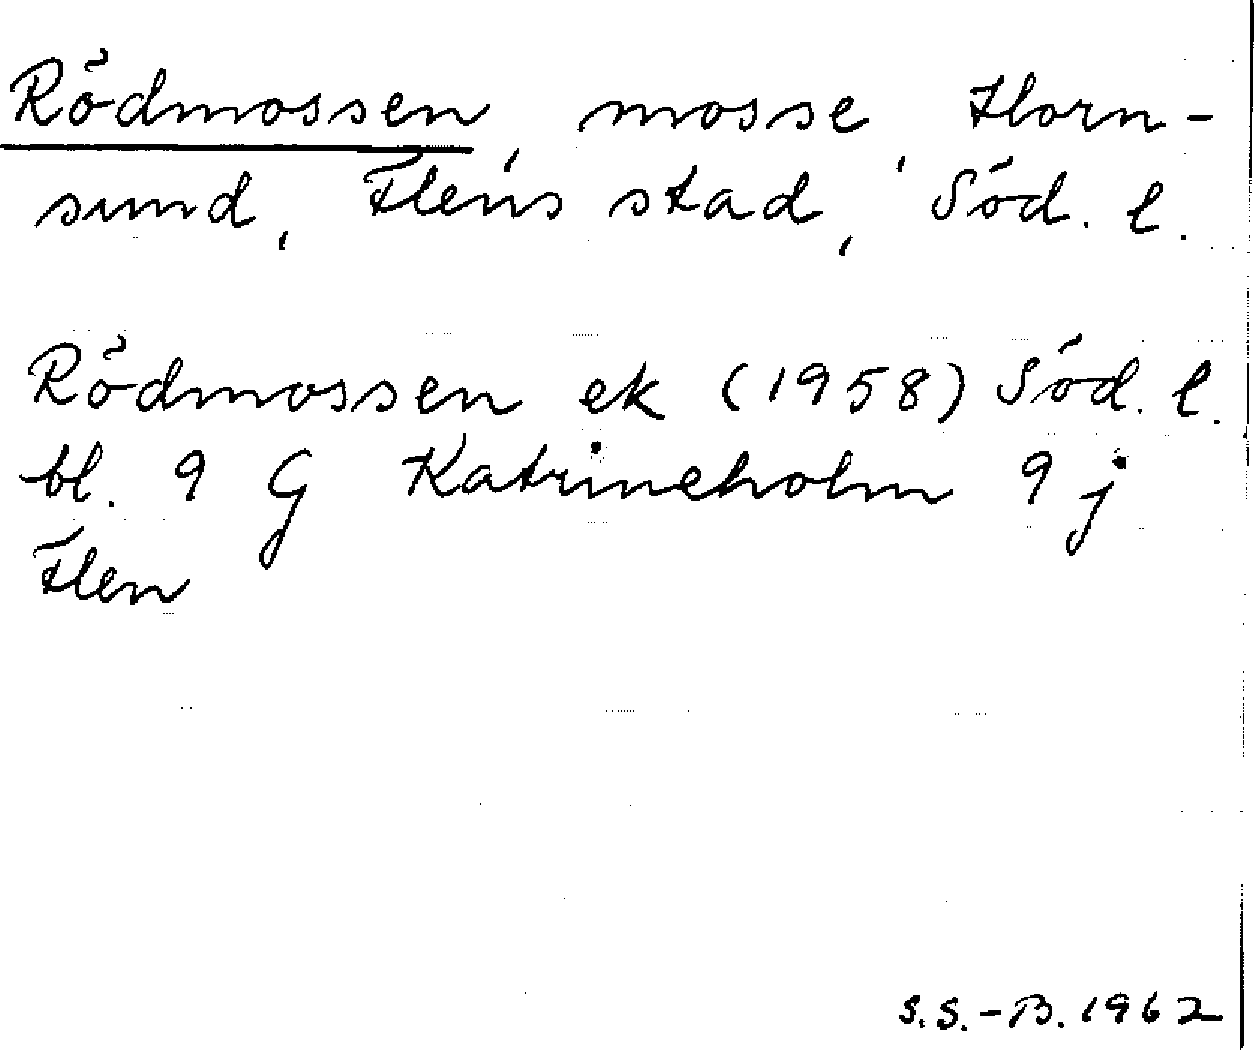 Rödmossen, mosse, Horn-
sund, Flens stad, Söd. l.
Rödmossen ek (1958) Söd. l.
bl. 9 G Katrineholm 9 j
Flen
S.S.-B. 1962